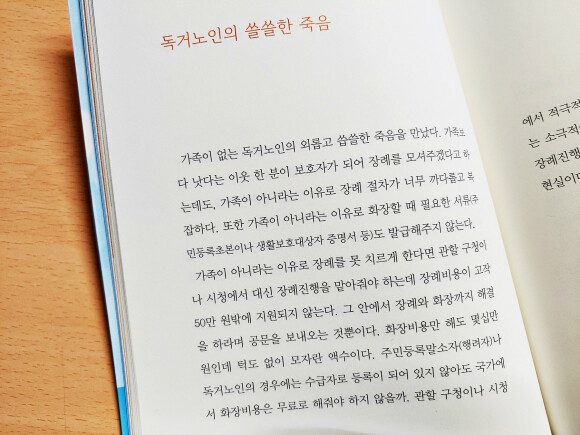 독거노인의 쓸쓸한 죽음
가족이 없는 독거노인의 외롭고 씁쓸한 죽음을 만났다. 가족보
다 낫다는 이웃 한 분이 보호자가 되어 장례를 모셔주겠다고 하
는데도, 가족이 아니라는 이유로 장례 절차가 너무 까다롭고 복
잡하다. 또한 가족이 아니라는 이유로 화장할 때 필요한 서류(주
민등록초본이나 생활보호대상자 증명서 등)도 발급해주지 않는다.
가족이 아니라는 이유로 장례를 못 치르게 한다면 관할 구청이
나 시청에서 대신 장례진행을 맡아줘야 하는데 장례비용이 고작
50만 원밖에 지원되지 않는다. 그 안에서 장례와 화장까지 해결
을 하라며 공문을 보내오는 것뿐이다. 화장비용만 해도 몇십만
원인데 턱도 없이 모자란 액수이다. 주민등록말소자(행려자)나
독거노인의 경우에는 수급자로 등록이 되어 있지 않아도 국가에
서 화장비용은 무료로 해줘야 하지 않을까. 관할 구청이나 시청
에서 적극적
는 소극적
장례진행
현실이다